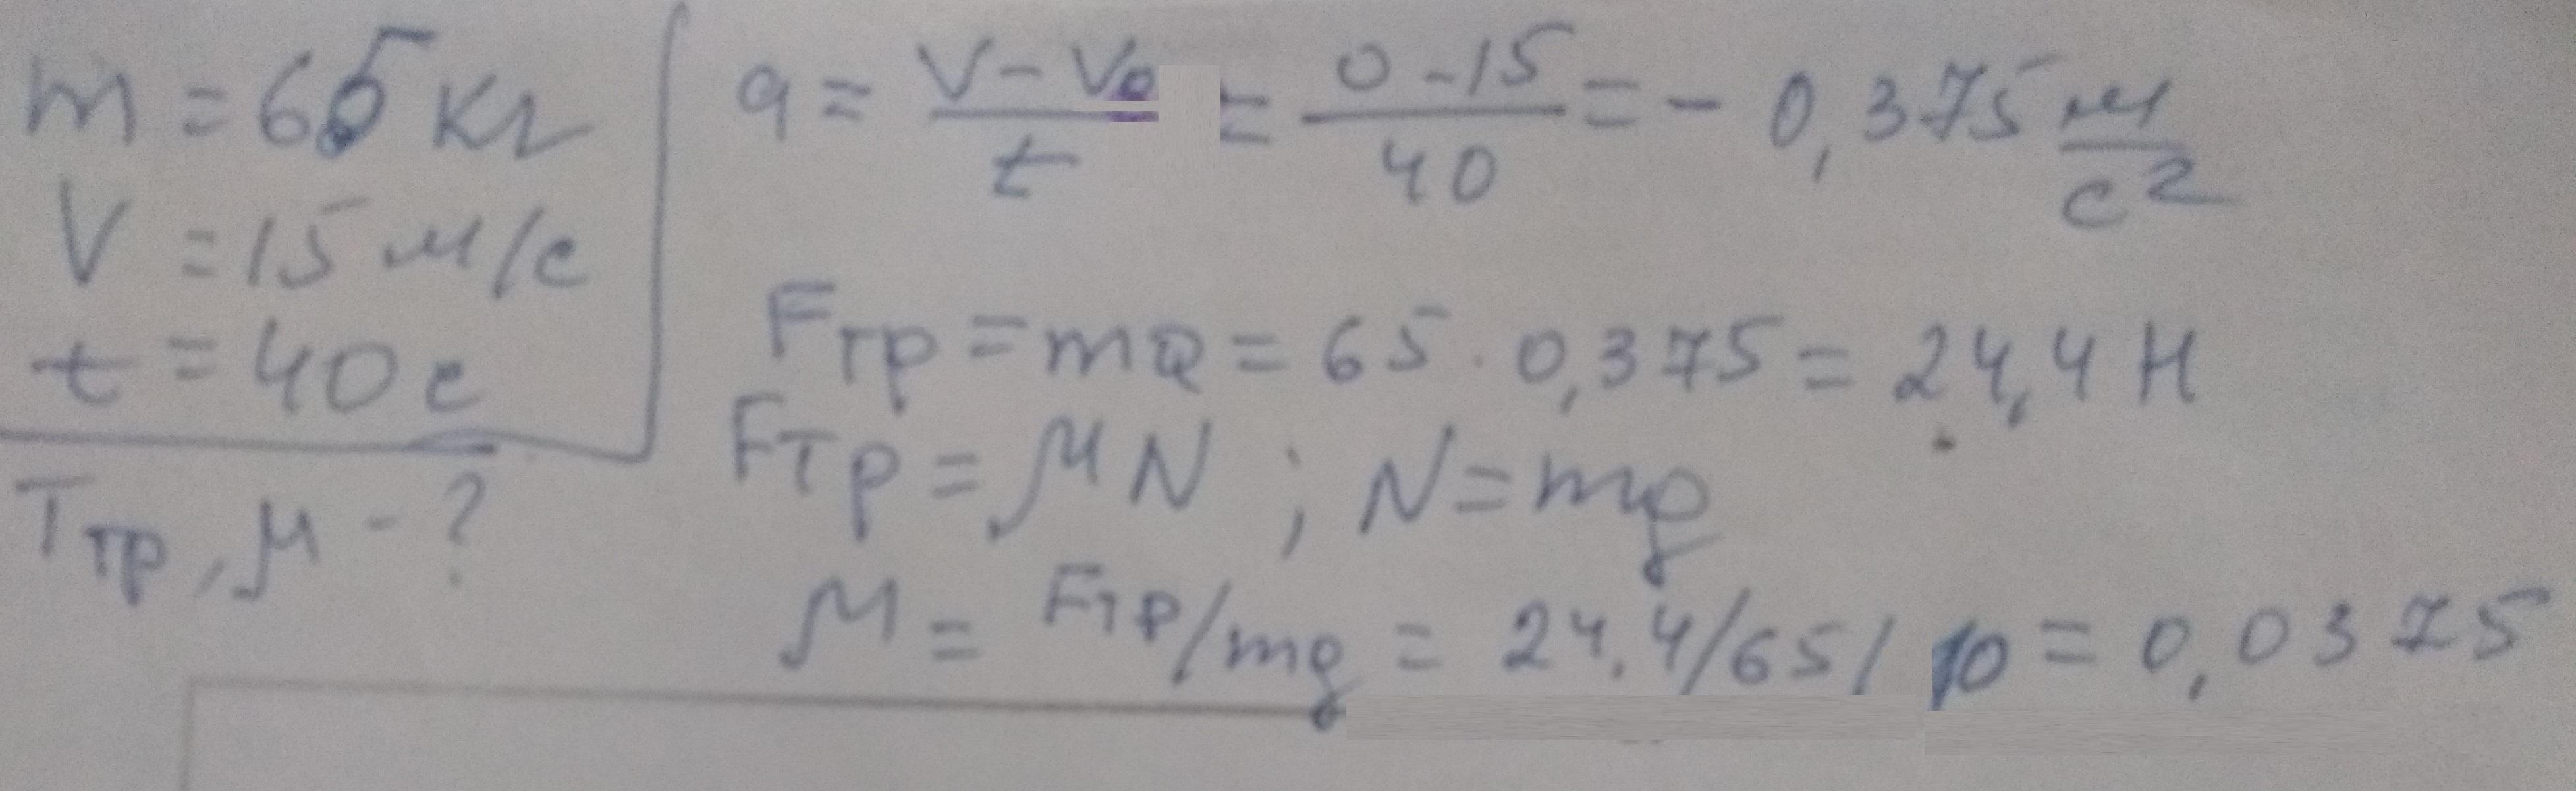 m = 65 кг
V = 15 м/с
t = 40 с
Tтр, μ - ?
a = (V - V₀)/t = (0 - 15)/40 = - 0,375 м/с²
Fтр = ma = 65 · 0,375 = 24,4 Н
Fтр = μN ; N = mg
μ = Fтр/mg = 24,4/65/10 = 0,0375